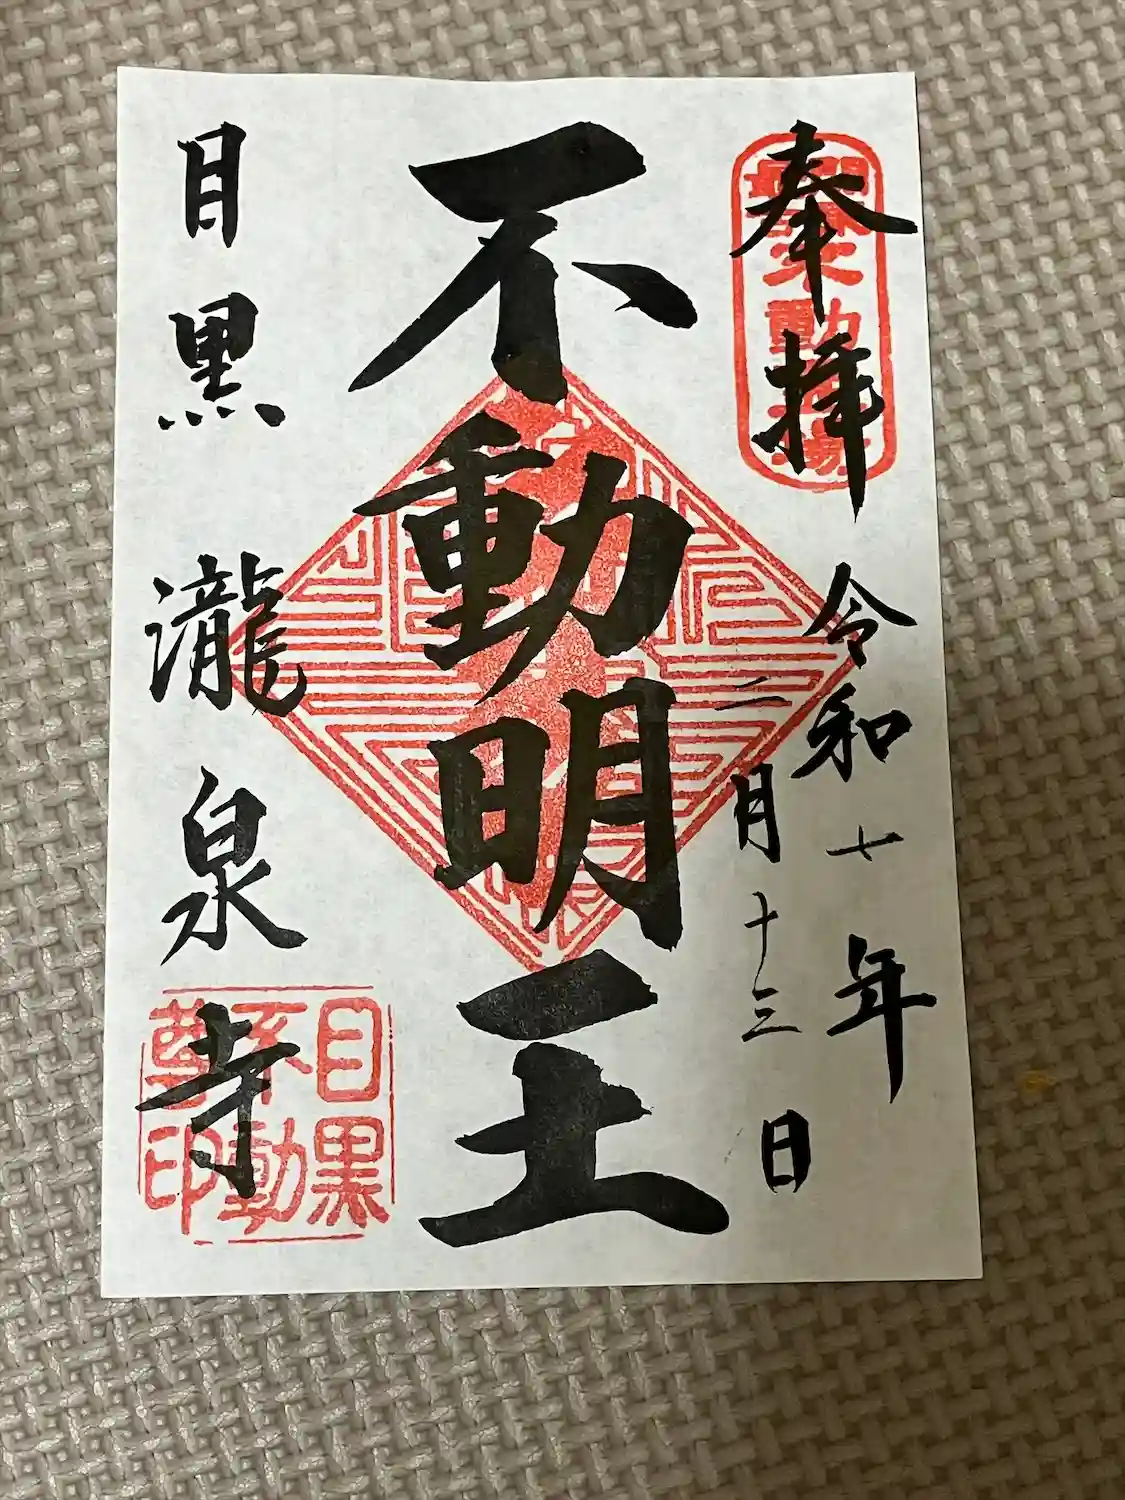 奉拝
令和七年
二月十三日
不動明王
目黒 瀧泉寺
目黒
不動
尊印